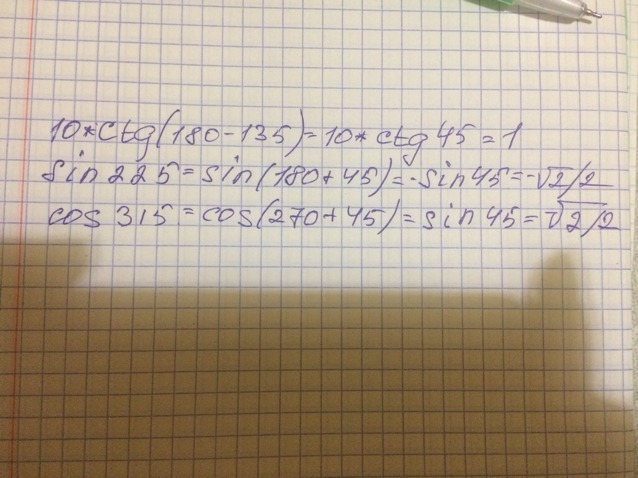 10*ctg(180-135)=10*ctg45=1
sin225=sin(180+45)=-sin45=-√2/2
cos315=cos(270+45)=sin45=√2/2